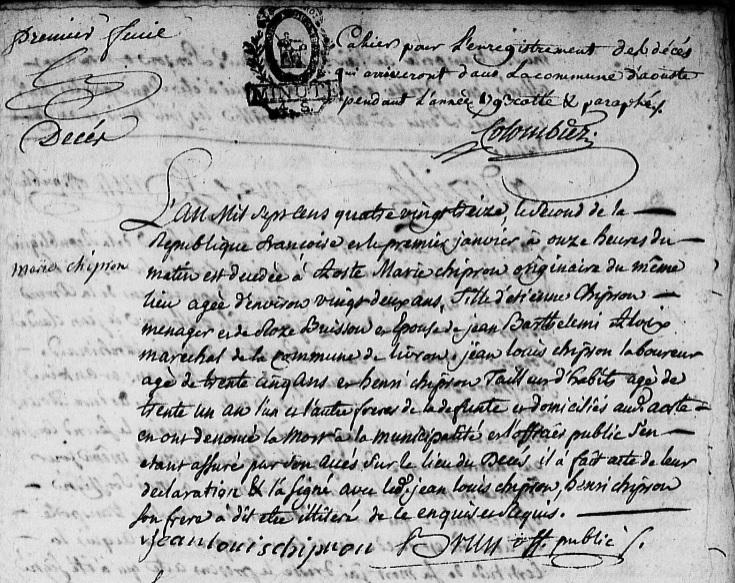 premier feuil
Decés
MINUTE
4. S.
Cahier pour l'enregistrement des décés
qui arriveront dans la commune d'aouste
pendant l'année cotté & paraphé
Colombier
L'an Mil Sept cens quatre vingt treize, le second de la
Republique françoise et le premier janvier, à onze heures du
matin est decedée à Aoste Marie chipron originaire du même
marie chipron
lieu agée d'environ vingt deux ans, fille d'etienne Chipron
menager et de Roze Buisson et Epouse de jean Barthelemi
marechal de la commune de livron. jean louis chipron laboureur
agé de trente cinq ans et henri chipron Tailleur d'habits agé de
trente un an l'un et l'autre freres de la defunte et domiciliés aoste
en ont denoncé la mort à la municipalité et l'offier public s'en
etant assuré par son accés sur le lieu du Decés, il à fait acte de leur
declaration & l'a signé avec led. jean louis chipron, henri chipron
son frere à dit etre illiteré de ce enquis et requis.
jean louis chipron Brun off. public